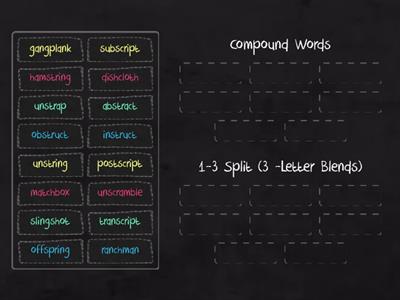 gangplank subscript
hamstring dishcloth
unstrap abstract
obstruct instruct
unstring postscript
matchbox unscramble
slingshot transcript
offspring ranchman
Compound Words
1-3 Split (3 -Letter Blends)